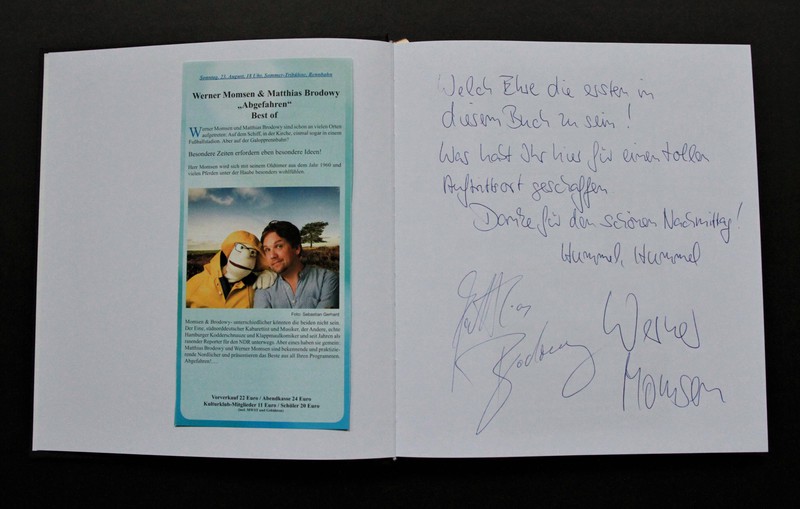 Sonntag, 23. August, 18 Uhr, Sommer-Zeltkino, Rennbahn
Werner Momsen & Matthias Brodowy
„Abgefahren“
Best of
Werner Momsen und Matthias Brodowy sind schon an vielen Orten
aufgetreten: Auf dem Schiff, in der Kirche, einmal sogar in einem
Fußballstadion. Aber auf der Galopprennbahn?
Besondere Zeiten erfordern eben besondere Ideen!
Herr Momsen wird sich mit seinem Oldtimer aus dem Jahr 1966 und
vielen Pferden unter der Haube besonders wohlfühlen.
Foto: Sebastian Gerhard
Momsen & Brodowy- unterschiedlicher könnten die beiden nicht sein.
Der Eine, südnorddeutscher Kabarettist und Musiker, der Andere, echte
Hamburger Kodderschnauze und Klappmaulkomiker und seit Jahren als
rasender Reporter für den NDR unterwegs. Aber eines haben sie gemein:
Matthias Brodowy und Werner Momsen sind bekennende und praktizie-
rende Nordlichter und präsentieren das Beste aus all Ihren Programmen.
Abgefahren!...
Vorverkauf 22 Euro / Abendkasse 24 Euro
Kulturklub-Mitglieder 11 Euro / Schüler 20 Euro
(inkl. MWST und Gebühren)
Welch Ehre die ersten in
diesem Buch zu sein!
Was habt Ihr hier für einen tollen
Auftrittsort geschaffen
Danke für den schönen Nachmittag!
Hummel, Hummel
Matthias
Brodowy
Werner
Momsen